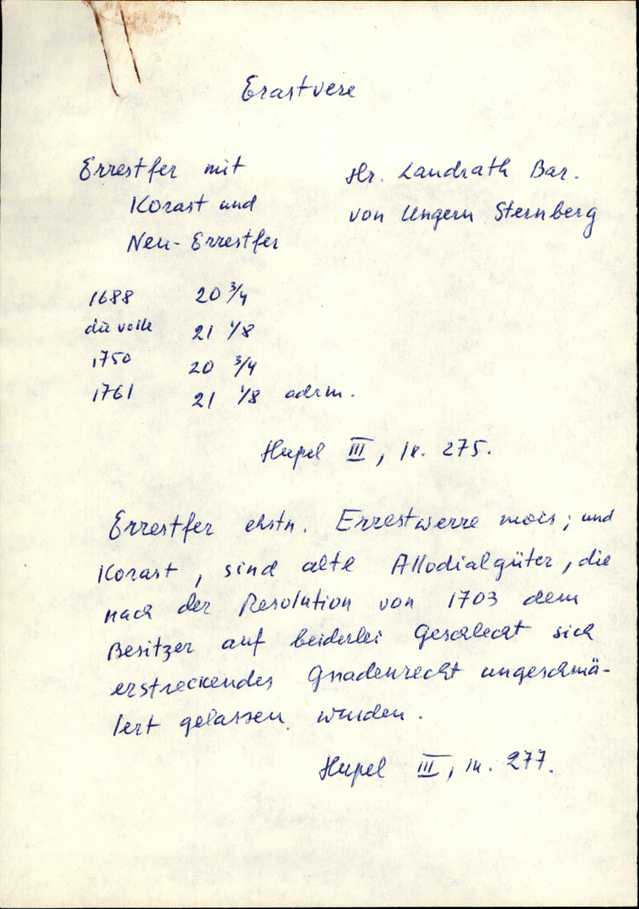 Erastvere
Errestfer mit
Korast und
Neu-Errestfer
Hr. Landrath Bar.
von Ungern Sternberg
1688 20 3/4
die volle 21 1/8
1750 20 3/4
1761 21 1/8 adrm.
Hupel III, lk. 275.
Errestfer ehstn. Errestwerre mois; und
Korast, sind alte Allodialgüter, die
nach der Resolution von 1703 dem
Besitzer auf beiderlei Geschlecht sich
erstreckendes Gnadenrecht ungeschmä-
lert gelassen wurden.
Hupel III, lk. 277.